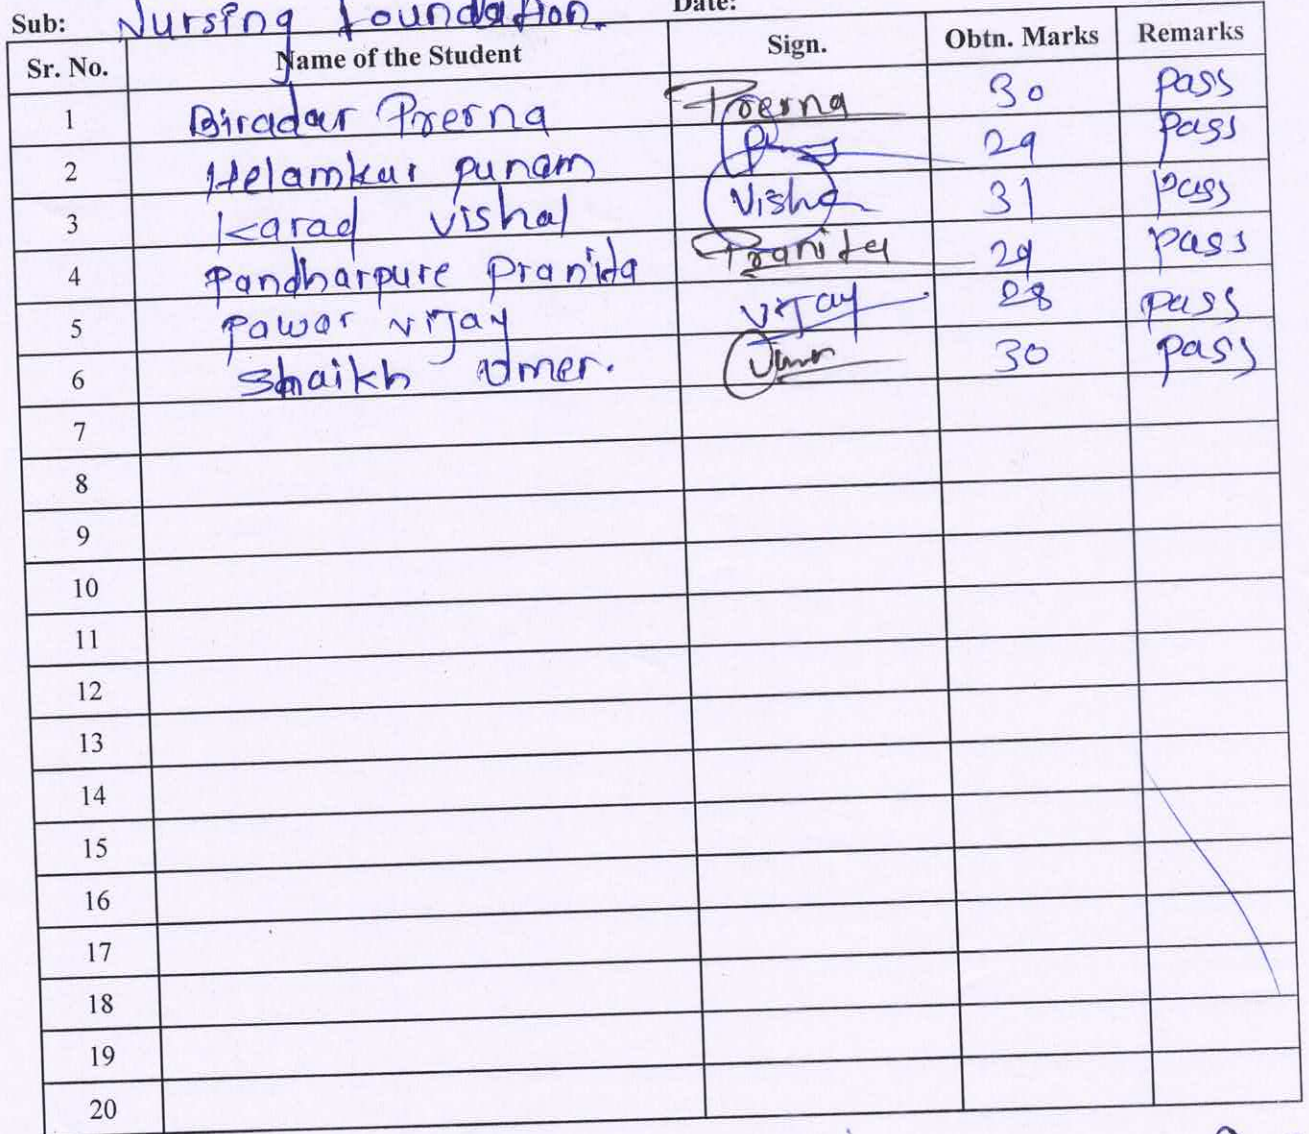 Sub: Nursing foundation. Date:
Sr. No. Name of the Student Sign. Obtn. Marks Remarks
1 Biradar Prerna Prerna 30 pass
2 Helamkar punam 29 pass
3 Karad vishal Visha 31 pass
4 Pandharpure Pranita Pranita 29 pass
5 Pawar vijay vijay 28 pass
6 Shaikh Umer. 30 pass
7
8
9
10
11
12
13
14
15
16
17
18
19
20